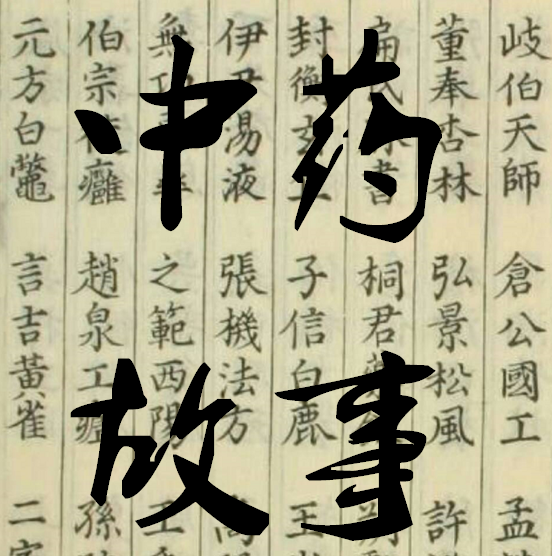 中药
故事
岐伯天師 倉公國工 孟
董奉杏林 弘景松風 許
扁 書 桐君
封衡 子信白鹿 玉
伊尹湯液 張機法方
之範西陽 王
伯宗 癰 趙泉工瘧 孫
元方白鼈 言吉黃雀 二